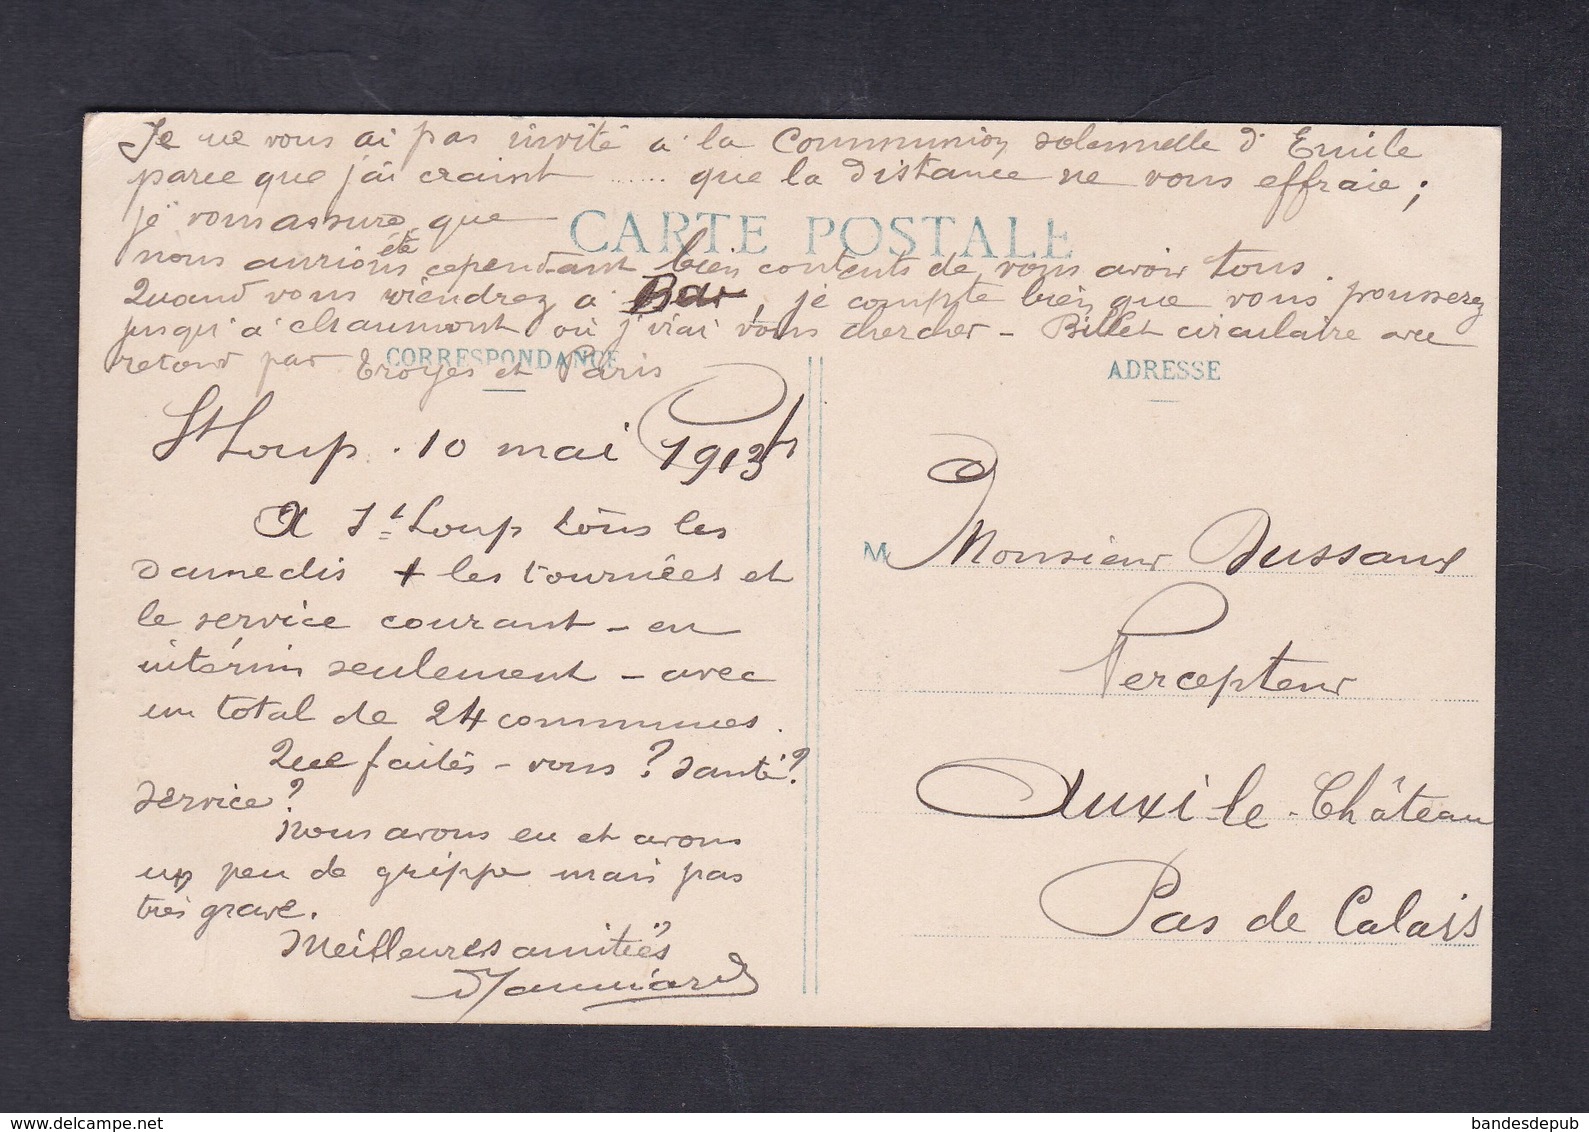 Je ne vous ai pas invité à la Communion solennelle d'Emile
parce que j'ai craint ...... que la distance ne vous effraie ;
je vous assure que
CARTE POSTALE
nous aurions été cependant bien contents de vous avoir tous.
Quand vous viendrez à Bar, je compte bien que vous pousserez
jusqu'à Chaumont où j'irai vous chercher - Billet circulaire avec
retour par Troyes et Paris
CORRESPONDANCE
St Loup . 10 mai 1913
A St Loup tous les
samedis + les tournées et
le service courant - en
intérim seulement - avec
un total de 24 communes.
Que faites-vous ? Santé ?
Service ?
Nous avons eu et avons
un peu de grippe mais pas
très grave.
Meilleures amitiés
ADRESSE
M Monsieur Dussaux
Percepteur
Auxi-le-Château
Pas de Calais
www.delcampe.net
bandesdepub